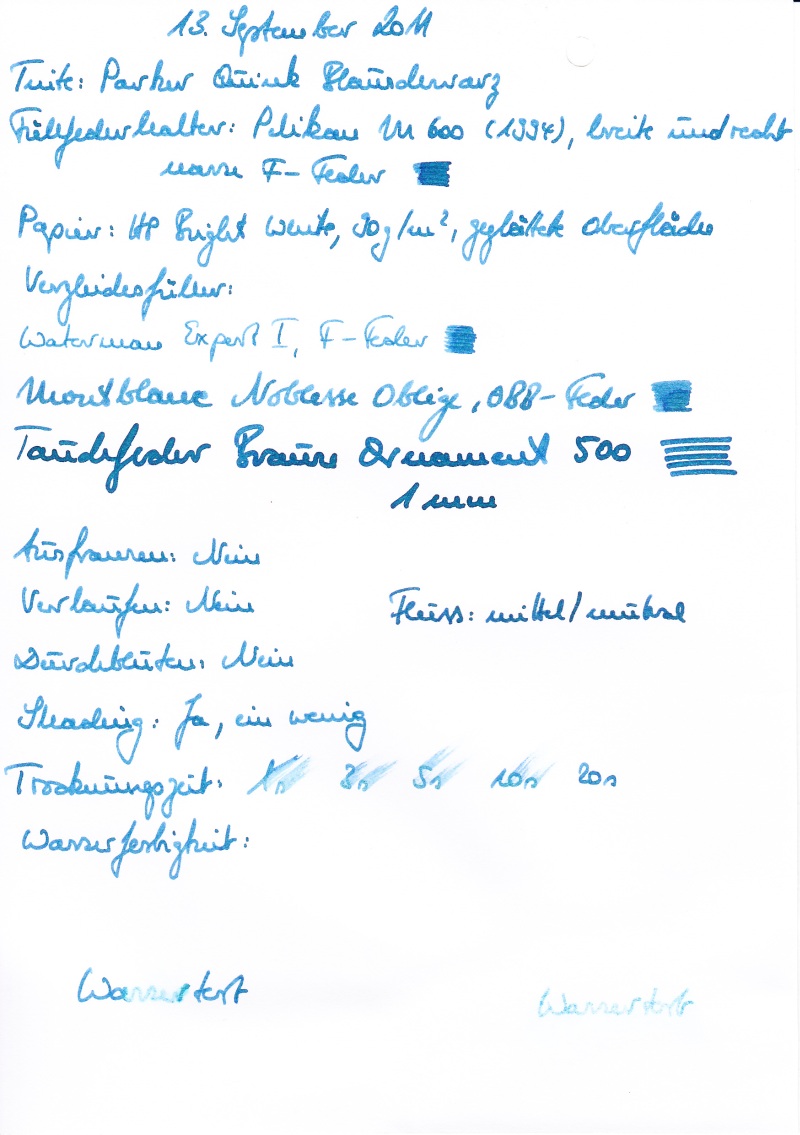 13. September 2011
Tinte: Parker Quink Blauschwarz
Füllfederhalter: Pelikan M 600 (1994), breite und recht
nasse F-Feder
Papier: HP Bright White, 90g/m², geglättete Oberfläche
Vergleichsfüller:
Waterman Expert I, F-Feder
Montblanc Noblesse Oblige, OBB-Feder
Tauchfeder Brause Ornament 500
1 mm
Ausfransen: Nein
Verlaufen: Nein
Fluss: mittel/neutral
Durchbluten: Nein
Shading: Ja, ein wenig
Trocknungszeit: 1s 3s 5s 10s 20s
Wasserfestigkeit:
Wassertest
Wassertest